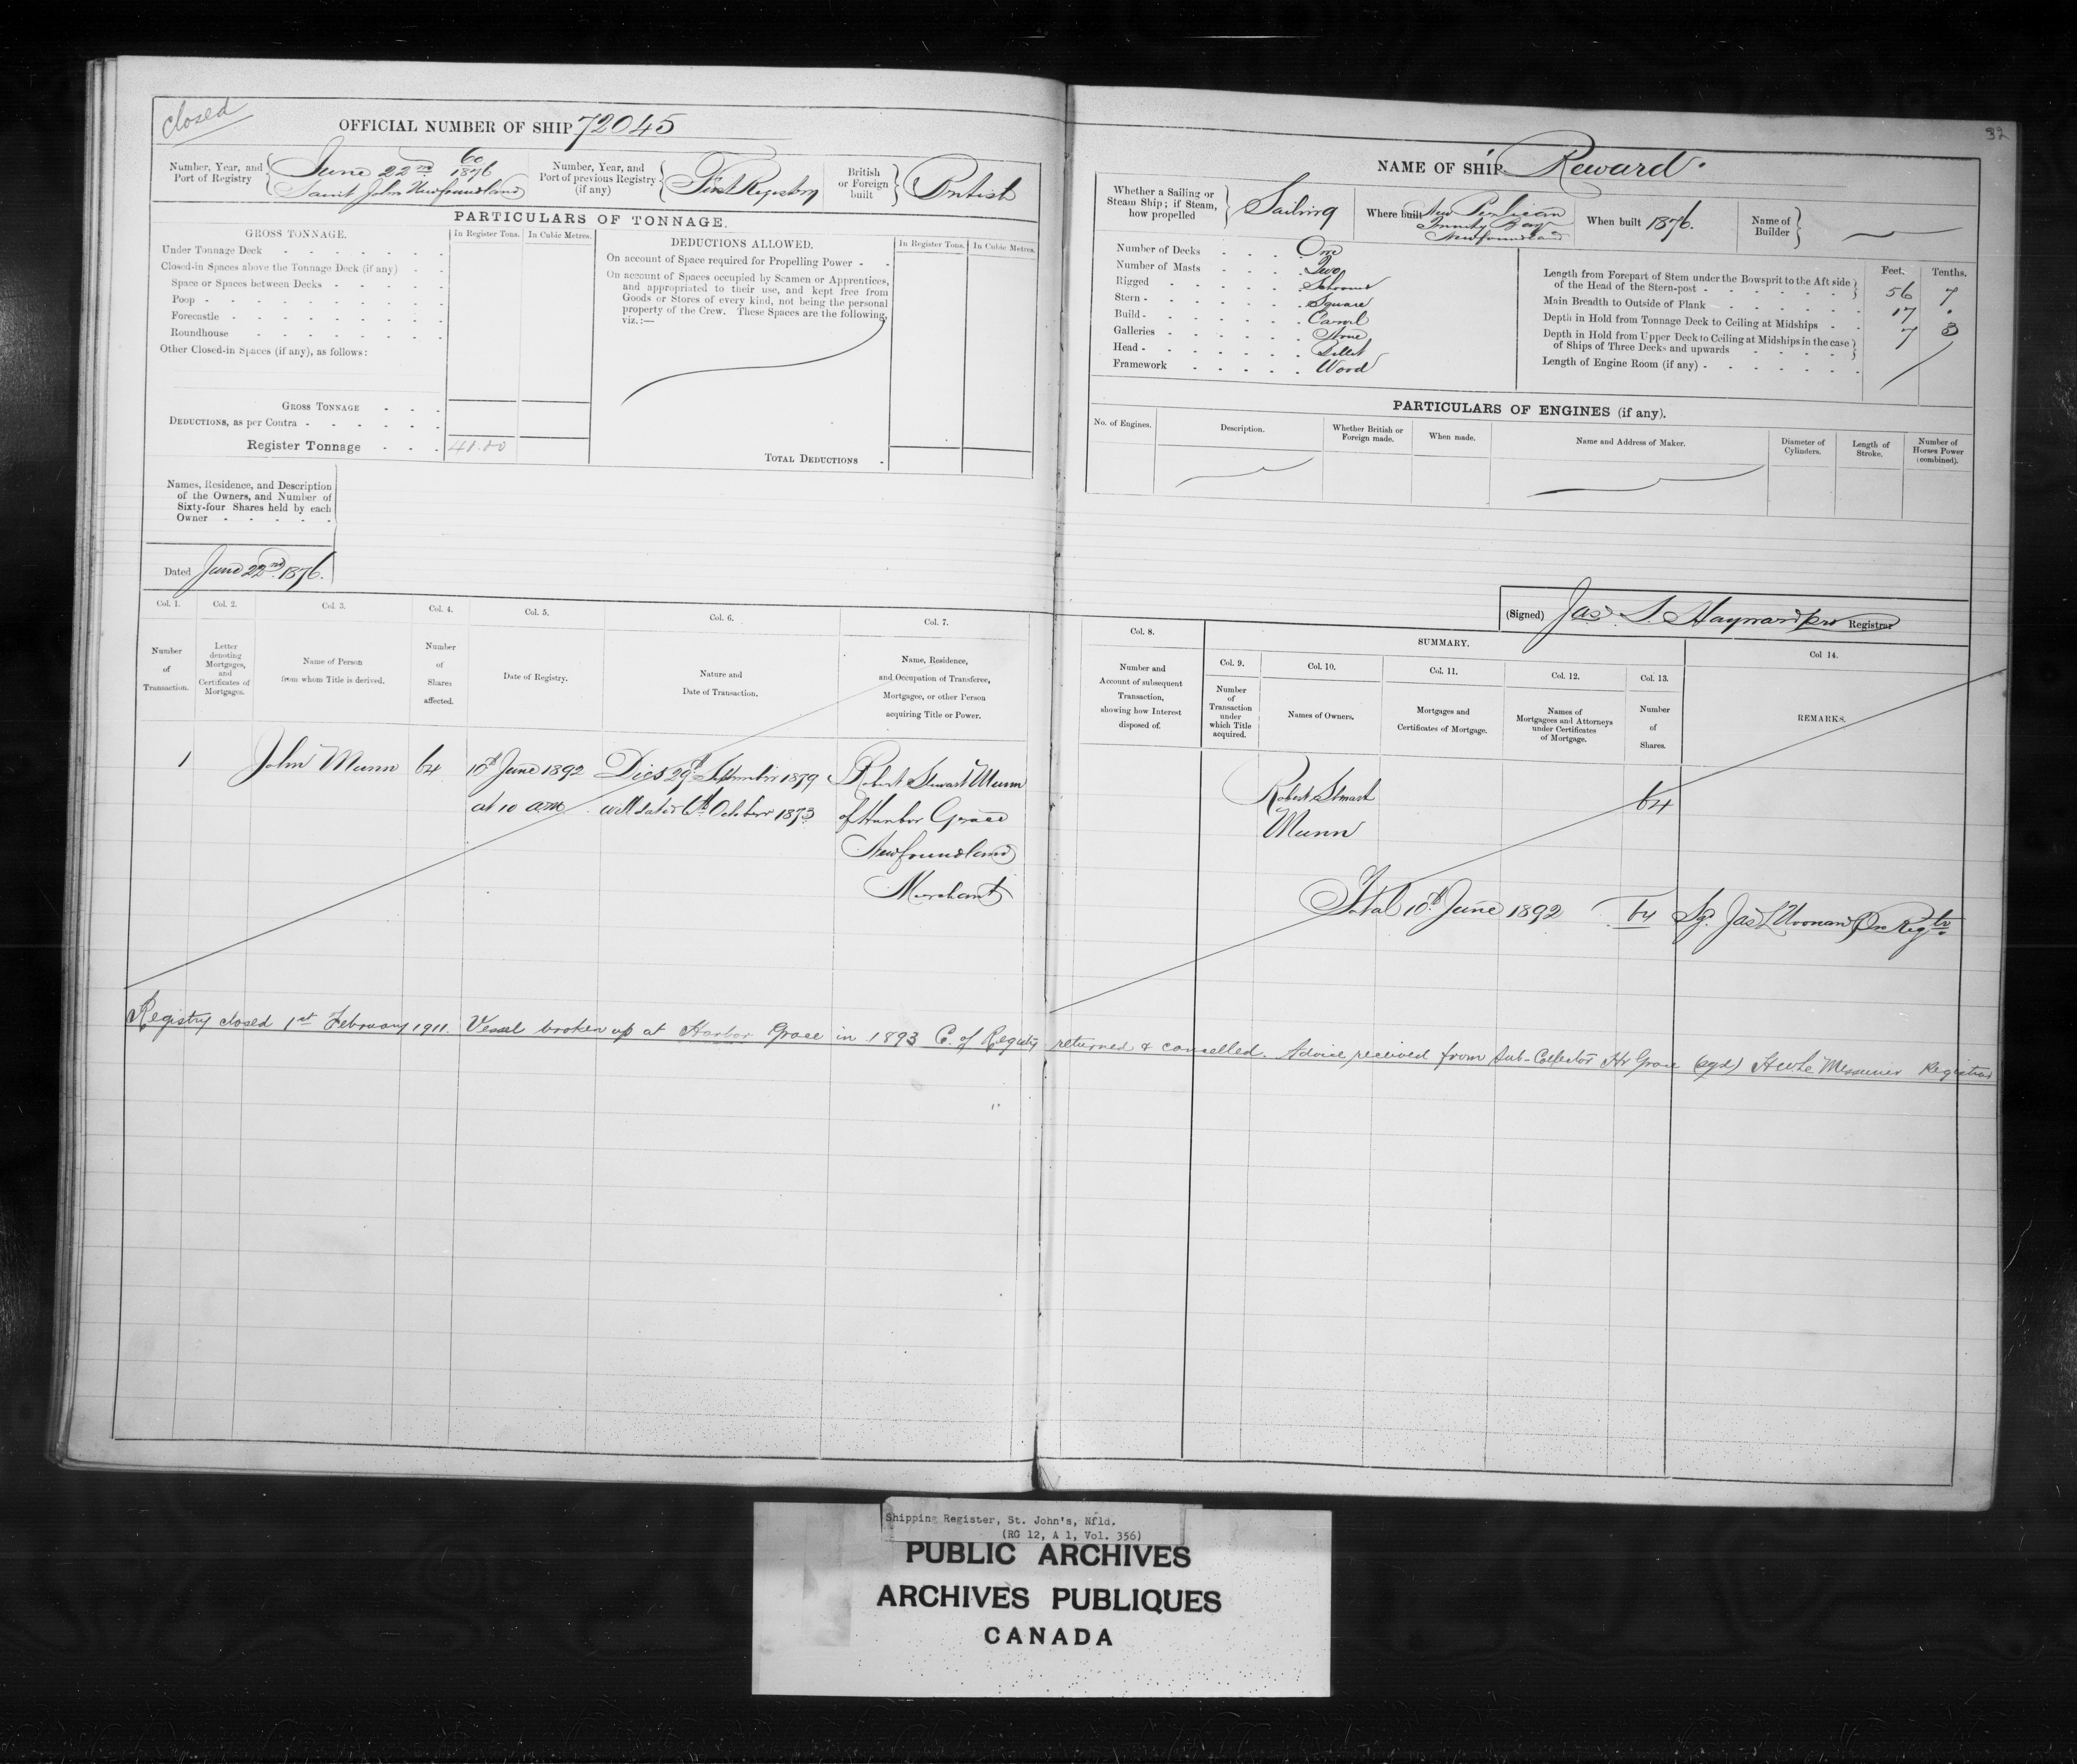 closed
OFFICIAL NUMBER OF SHIP 72045
Number, Year, and
Port of Registry
60
June 22nd 1876
Saint John Newfoundland
Number, Year, and
Port of previous Registry
(if any)
First Registry
British
or Foreign
built
British
PARTICULARS OF TONNAGE.
GROSS TONNAGE.
In Register Tons.
In Cubic Metres.
Under Tonnage Deck
Closed-in Spaces above the Tonnage Deck (if any)
Space or Spaces between Decks
Poop
Forecastle
Roundhouse
Other Closed-in Spaces (if any), as follows:
GROSS TONNAGE
DEDUCTIONS, as per Contra
Register Tonnage
DEDUCTIONS ALLOWED.
In Register Tons.
In Cubic Metres.
On account of Space required for Propelling Power
On account of Spaces occupied by Seamen or Apprentices,
and appropriated to their use, and kept free from
Goods or Stores of every kind, not being the personal
property of the Crew. These Spaces are the following,
viz.:—
TOTAL DEDUCTIONS
Names, Residence, and Description
of the Owners, and Number of
Sixty-four Shares held by each
Owner
Dated June 22nd. 1876.
Col. 1.
Number
of
Transaction.
Col. 2.
Letter
denoting
Mortgages,
and
Certificates of
Mortgages.
Col. 3.
Name of Person
from whom Title is derived.
Col. 4.
Number
of
Shares
affected.
Col. 5.
Date of Registry.
Col. 6.
Nature and
Date of Transaction.
Col. 7.
Name, Residence,
and Occupation of Transferee,
Mortgagee, or other Person
acquiring Title or Power.
1 John Munn 64 10th June 1892 Dies 29th September 1879 Robert Stewart Munn
at 10 a.m. will dated 6th October 1873 of Harbor Grace
Newfoundland
Merchant
32
NAME OF SHIP Reward.
Whether a Sailing or
Steam Ship; if Steam,
how propelled
Sailing
Where built New Perlican
Trinity Bay
Newfoundland
When built 1876.
Name of
Builder
Number of Decks One
Number of Masts Two
Rigged Schooner
Stern Square
Build Carvel
Galleries None
Head Billet
Framework Wood
Feet. Tenths.
Length from Forepart of Stem under the Bowsprit to the Aft side
of the Head of the Stern-post 56 7
Main Breadth to Outside of Plank 17 .
Depth in Hold from Tonnage Deck to Ceiling at Midships 7 3
Depth in Hold from Upper Deck to Ceiling at Midships in the case
of Ships of Three Decks and upwards
Length of Engine Room (if any)
PARTICULARS OF ENGINES (if any).
No. of Engines.
Description.
Whether British or
Foreign made.
When made.
Name and Address of Maker.
Diameter of
Cylinders.
Length of
Stroke.
Number of
Horses Power
(combined).
(Signed) Jas. S. Hayward pro Registrar
Col. 8.
Number and
Account of subsequent
Transaction,
showing how Interest
disposed of.
SUMMARY.
Col. 9.
Number
of
Transaction
under
which Title
acquired.
Col. 10.
Names of Owners.
Col. 11.
Mortgages and
Certificates of Mortgage.
Col. 12.
Names of
Mortgagees and Attorneys
under Certificates
of Mortgage.
Col. 13.
Number
of
Shares.
Col 14.
REMARKS.
Robert Stewart 64
Munn
Total 10th June 1892 64 Sg. Jas L Noonan Pro Regtr.
Registry closed 1st February 1911. Vessel broken up at Harbor Grace in 1893 C. of Registry returned & cancelled. Advice received from Sub-Collector Hr Grace (sgd) H W Le Messurier Registrar
Shipping Register, St. John's, Nfld.
(RG 12, A 1, Vol. 356)
PUBLIC ARCHIVES
ARCHIVES PUBLIQUES
CANADA